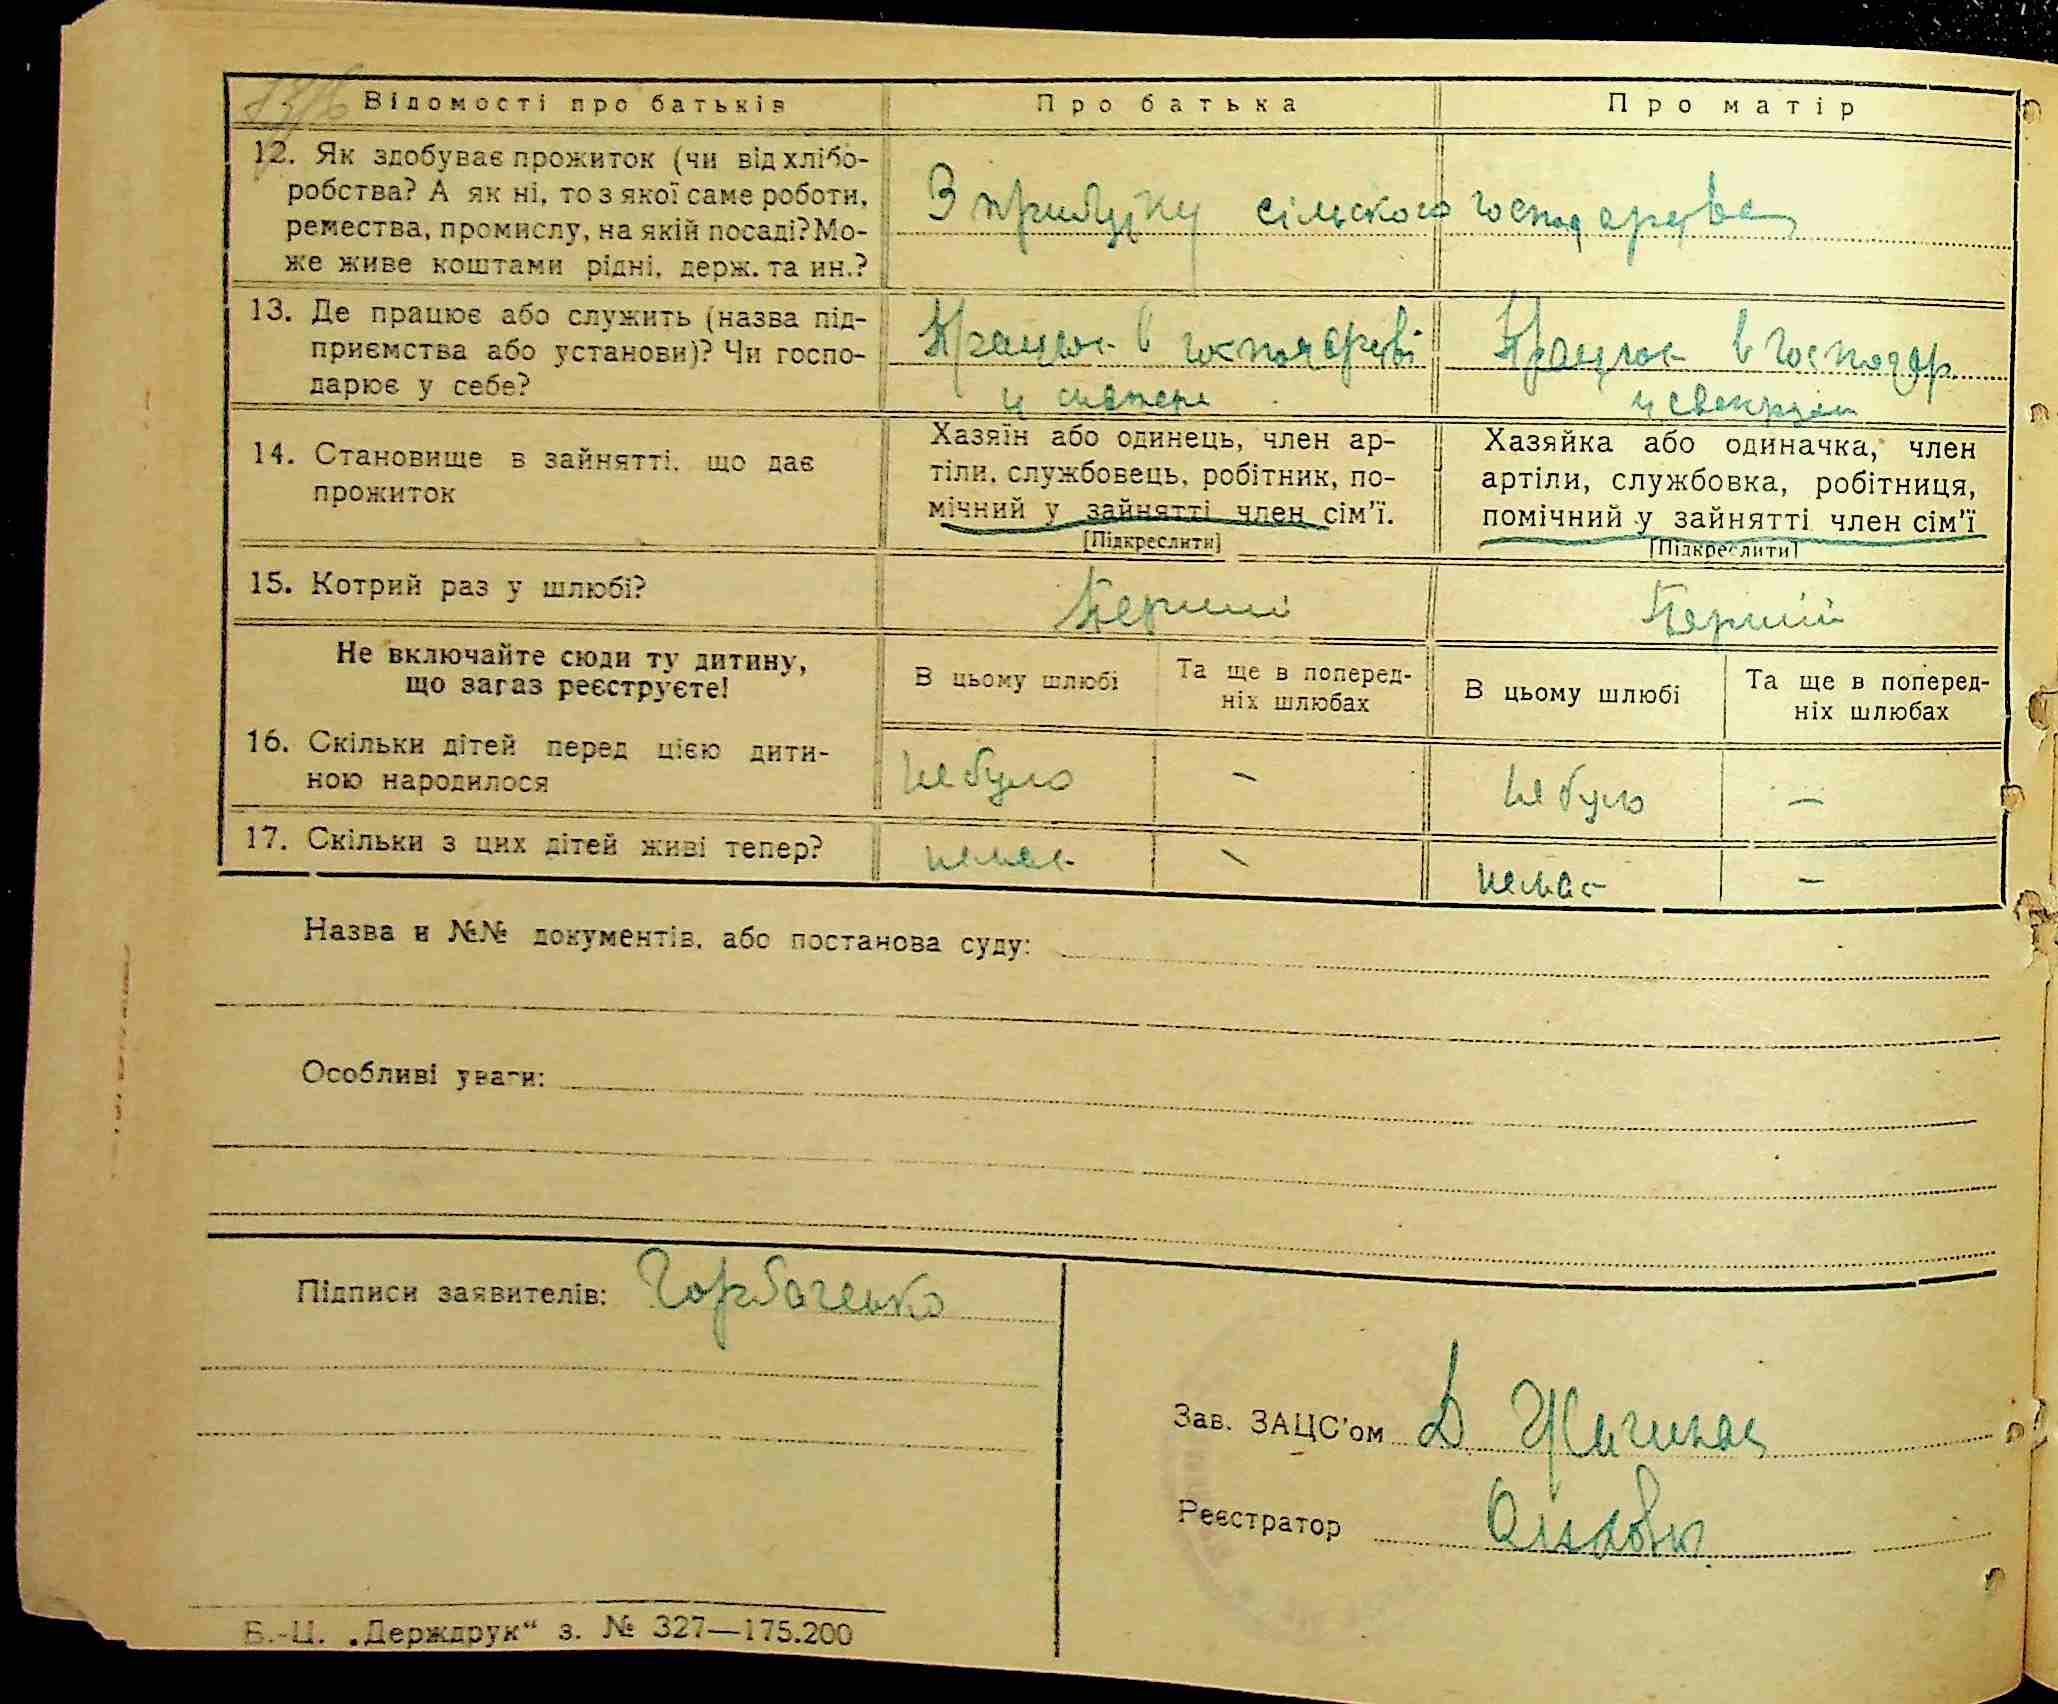 Відомості про батьків
Про батька
Про матір
12. Як здобуває прожиток (чи від хлібо-
робства? А як ні, то з якої саме роботи,
ремества, промислу, на якій посаді? Мо-
же живе коштами рідні, держ. та ин.?
З прибутку сільского господарства
13. Де працює або служить (назва під-
приємства або установи)? Чи госпо-
дарює у себе?
Працює в господарстві
Працює в господар.
у свекрухи
14. Становище в зайнятті, що дає
прожиток
Хазяїн або одинець, член ар-
тіли, службовець, робітник, по-
мічний у зайнятті член сім'ї.
[Підкреслити]
Хазяйка або одиначка, член
артіли, службовка, робітниця,
помічний у зайнятті член сім'ї
[Підкреслити]
15. Котрий раз у шлюбі?
Перший
Перший
Не включайте сюди ту дитину,
що зараз реєструєте!
В цьому шлюбі
Та ще в поперед-
ніх шлюбах
В цьому шлюбі
Та ще в поперед-
ніх шлюбах
16. Скільки дітей перед цією дити-
ною народилося
не було
–
не було
–
17. Скільки з цих дітей живі тепер?
немає
–
немає
–
Назва и №№ документів, або постанова суду:
Особливі уваги:
Підписи заявителів: Горбаченко
Зав. ЗАЦС'ом
Реєстратор
Б.-Ц. „Держдрук“ з. № 327—175.200